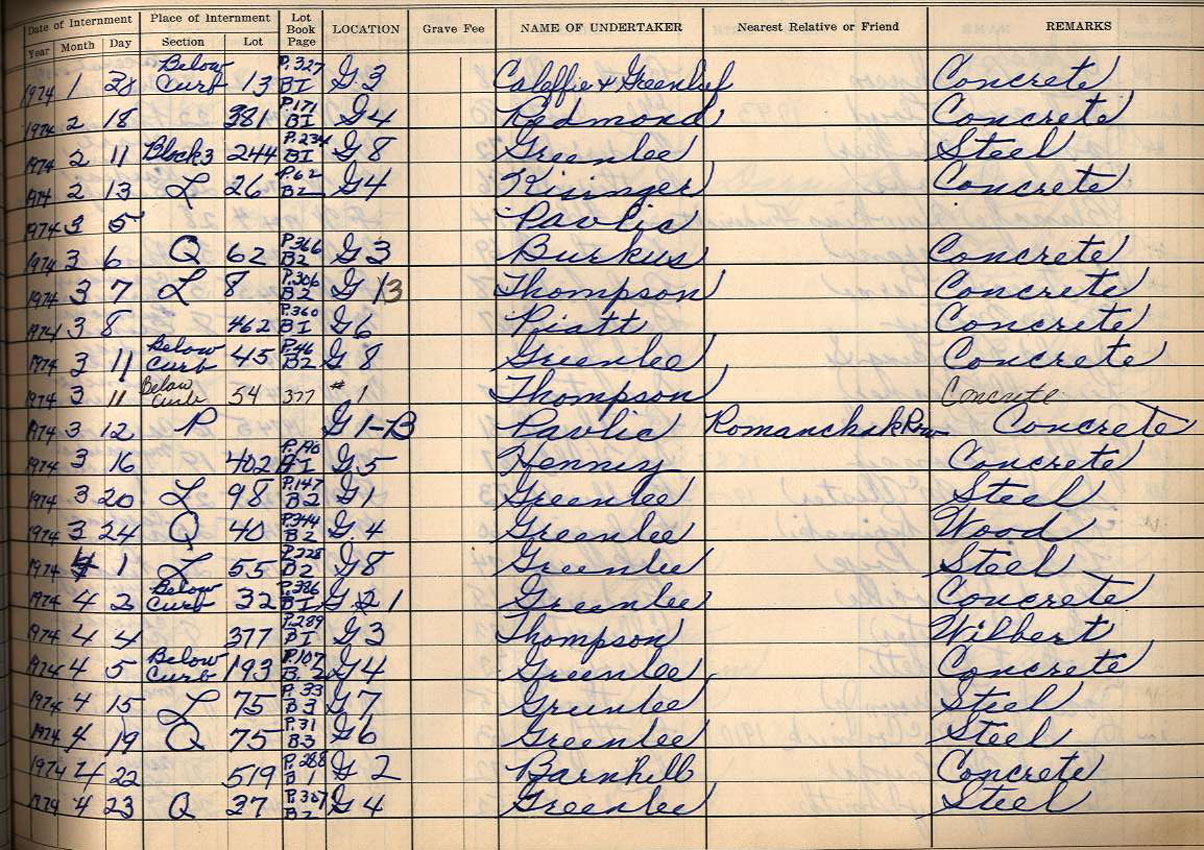 Date of Internment Place of Internment Lot Book Page LOCATION Grave Fee NAME OF UNDERTAKER Nearest Relative or Friend REMARKS
Year Month Day Section Lot
1974 1 28 Below Curb 13 P.327 BI G.3 Caleffie & Greenleef Concrete
1974 2 18 381 P.171 BI G4 Redmond Concrete
1974 2 11 Block 3 244 P.234 BI G 8 Greenlee Steel
1974 2 13 L 26 P.62 B2 G4 Kisinger Concrete
1974 3 5 Pavlic
1974 3 6 Q 62 P.366 B2 G3 Burkus Concrete
1974 3 7 L 8 P.306 B2 G 13 Thompson Concrete
1974 3 8 462 P.360 BI G6 Piatt Concrete
1974 3 11 Below Curb 45 P.46 B2 G 8 Greenlee Concrete
1974 3 11 Below Curb 54 377 # 1 Thompson Concrete
1974 3 12 P G1-B Pavlic Romanchak Row Concrete
1974 3 16 402 P.190 BI G.5 Henney Concrete
1974 3 20 L 98 P.147 B2 G1 Greenlee Steel
1974 3 24 Q 40 P.344 B2 G.4 Greenlee Wood
1974 4 1 L 55 P.228 B2 G8 Greenlee Steel
1974 4 2 Below Curb 32 P.386 BI G.21 Greenlee Concrete
1974 4 4 377 P.289 BI G3 Thompson Wilbert
1974 4 5 Below Curb 193 P.107 B.2 G4 Greenlee Concrete
1974 4 15 L 75 P.33 B3 G7 Greenlee Steel
1974 4 19 Q 75 P.31 B3 G6 Greenlee Steel
1974 4 22 519 P.288 B1 G 2 Barnhill Concrete
1974 4 23 Q 37 P.387 B2 G 4 Greenlee Steel